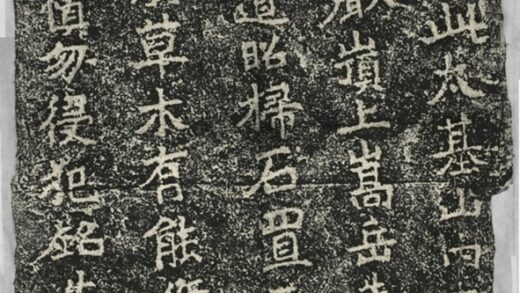 此太基山内
嶺上嵩岳
道昭掃石置
草木有能
慎勿侵犯銘